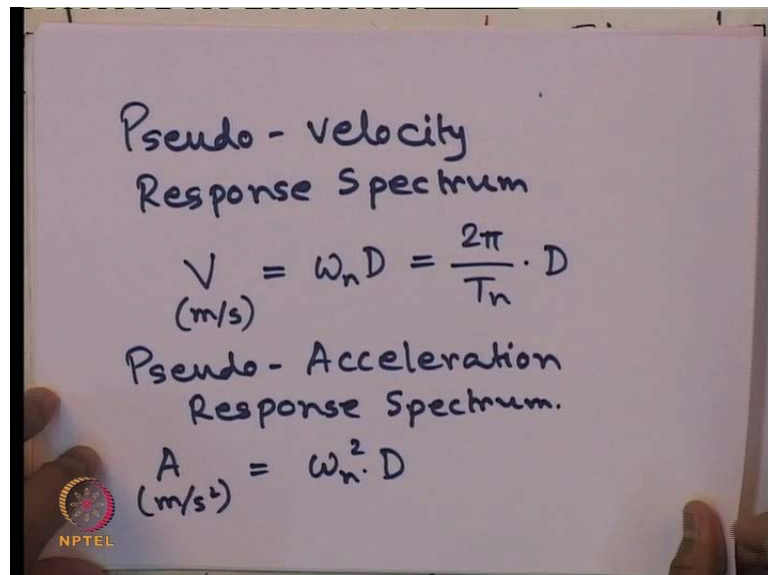 Pseudo - velocity
Response Spectrum
V = ωₙD = 2π/Tₙ · D
(m/s)
Pseudo - Acceleration
Response Spectrum.
A = ωₙ²· D
(m/s²)
NPTEL